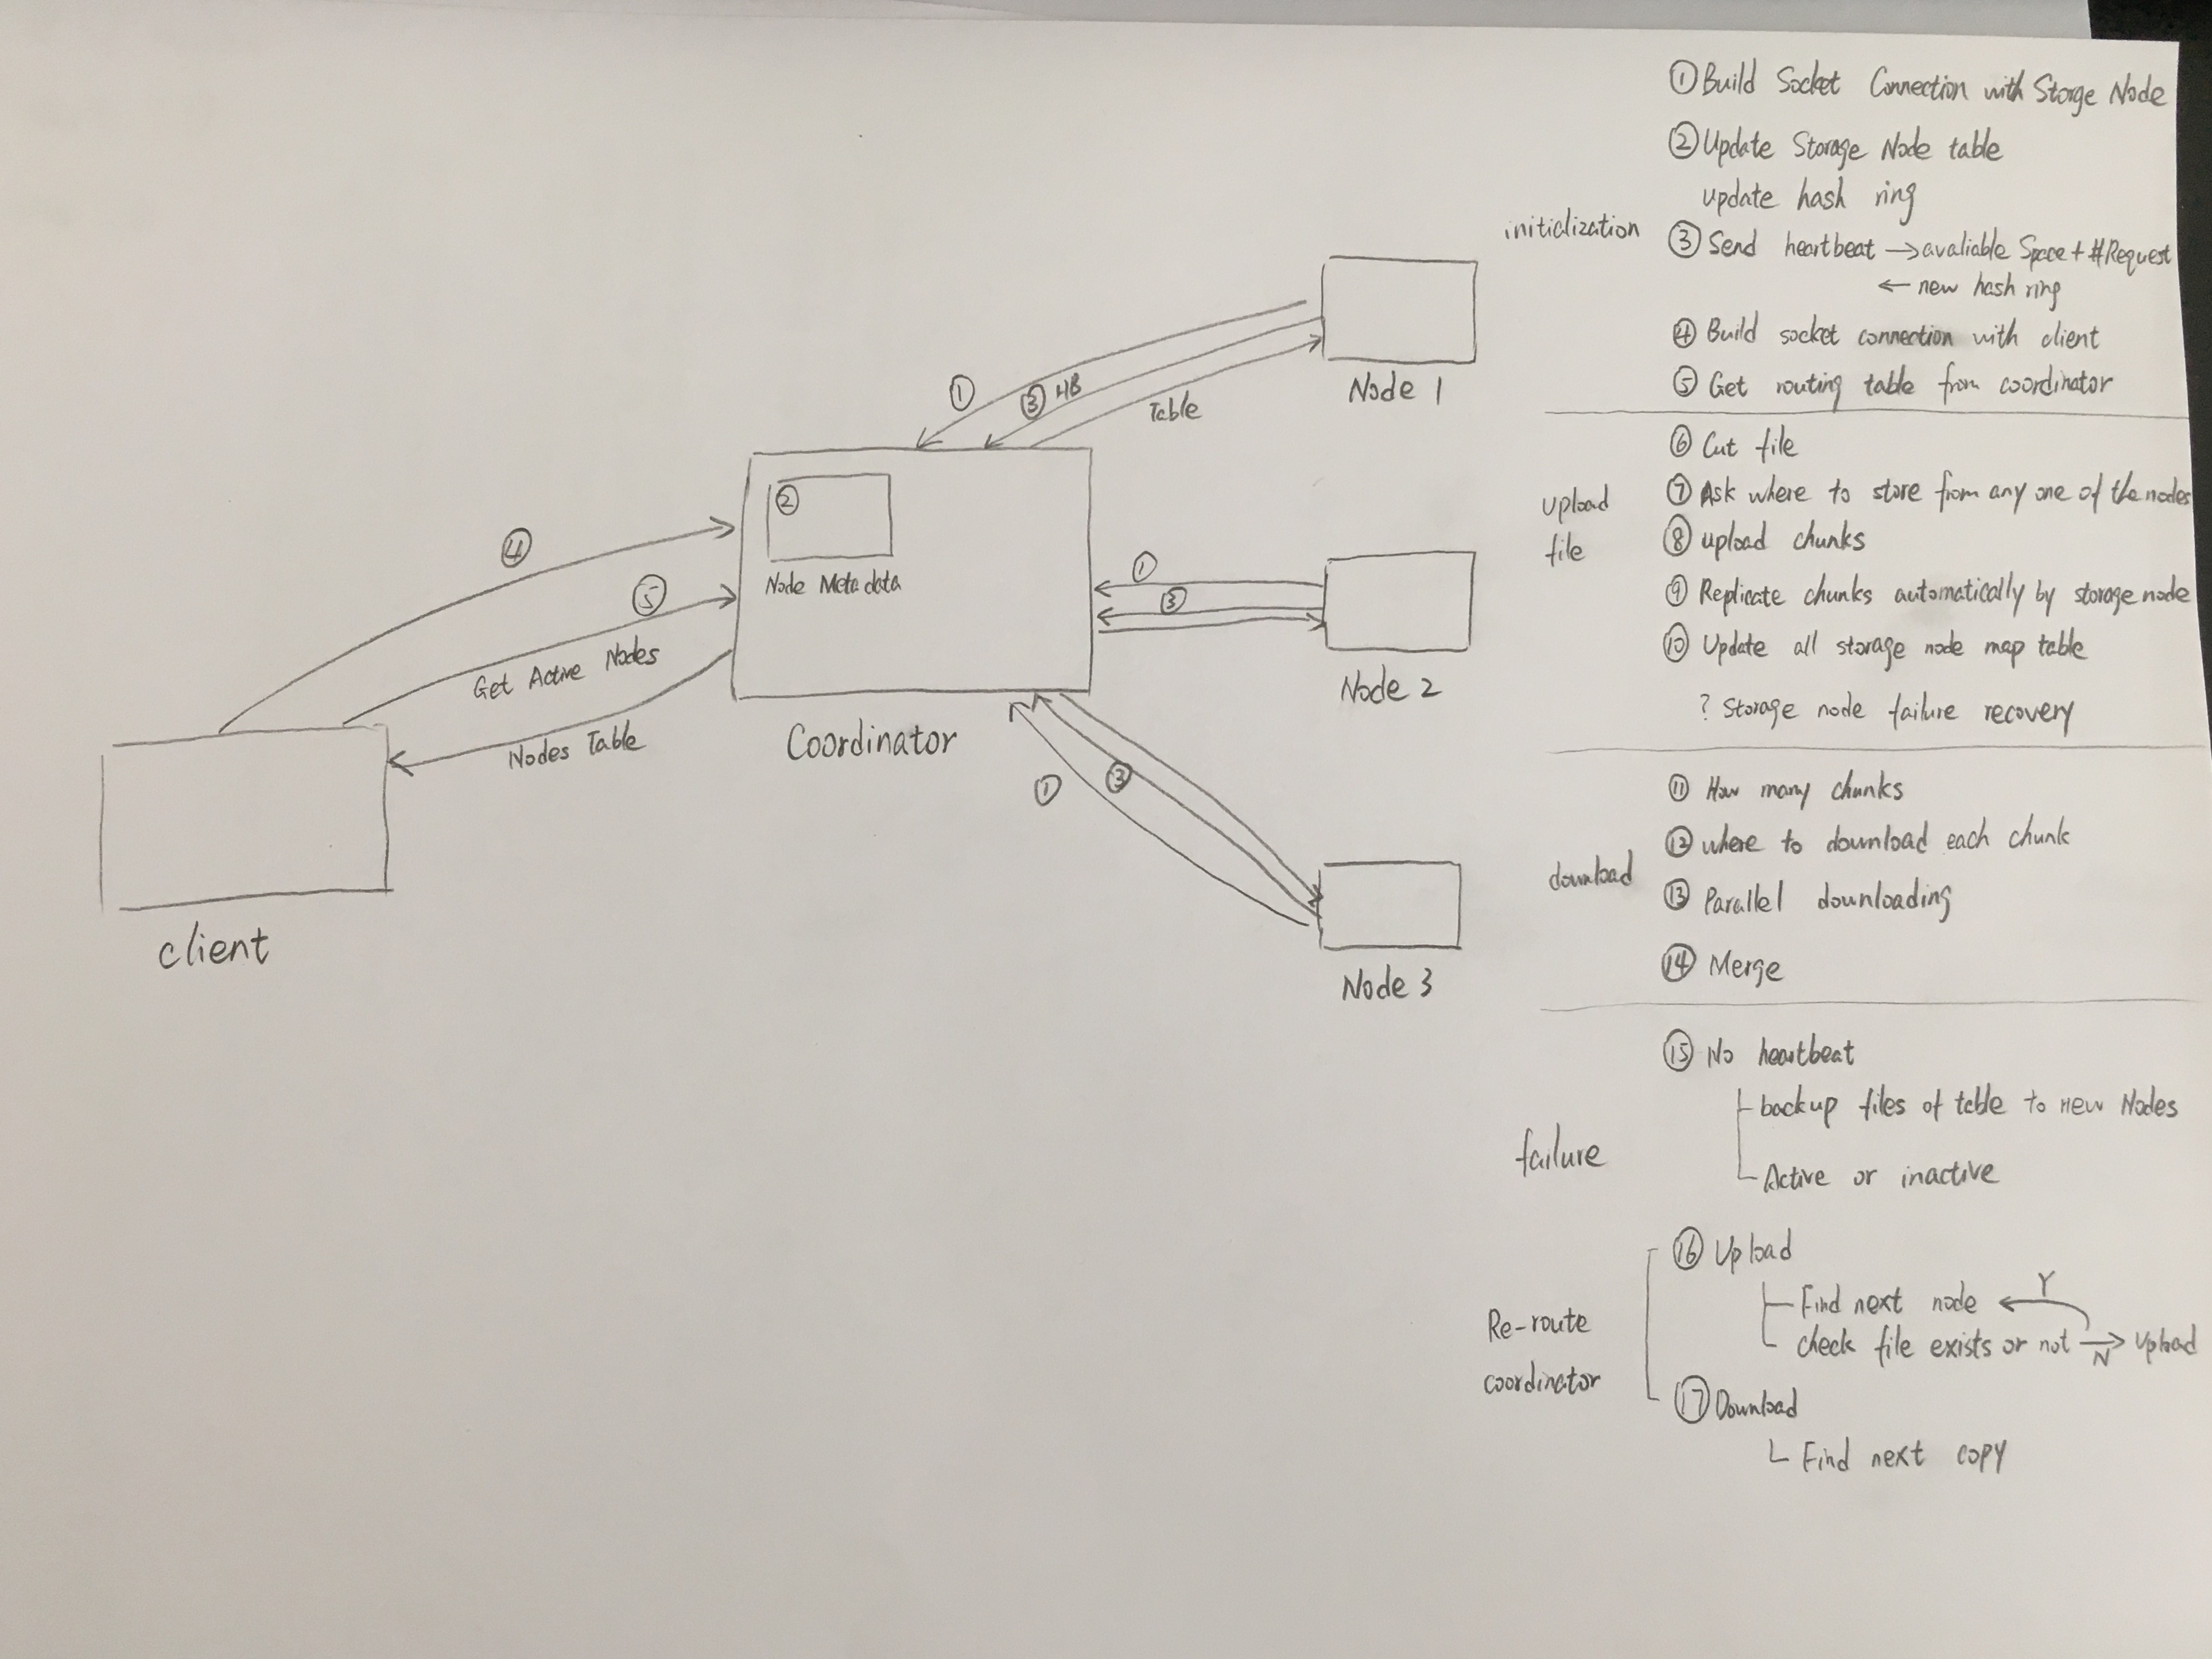 ①
③ HB
Table
Node 1
④
②
Node Metadata
⑤
Get Active Nodes
Nodes Table
Coordinator
client
①
③
Node 2
①
③
Node 3
initialization
① Build Socket Connection with Storge Node
② Update Storage Node table
update hash ring
③ Send heartbeat → avaliable Space + #Request
← new hash ring
④ Build socket connection with client
⑤ Get routing table from coordinator
upload
file
⑥ Cut file
⑦ Ask where to store from any one of the nodes
⑧ upload chunks
⑨ Replicate chunks automatically by storage node
⑩ Update all storage node map table
? Storage node failure recovery
download
⑪ How many chunks
⑫ where to download each chunk
⑬ Parallel downloading
⑭ Merge
failure
⑮ No heartbeat
backup files of table to new Nodes
Active or inactive
Re-route
coordinator
⑯ Upload
Find next node ← Y
check file exists or not → N Upload
⑰ Download
Find next copy